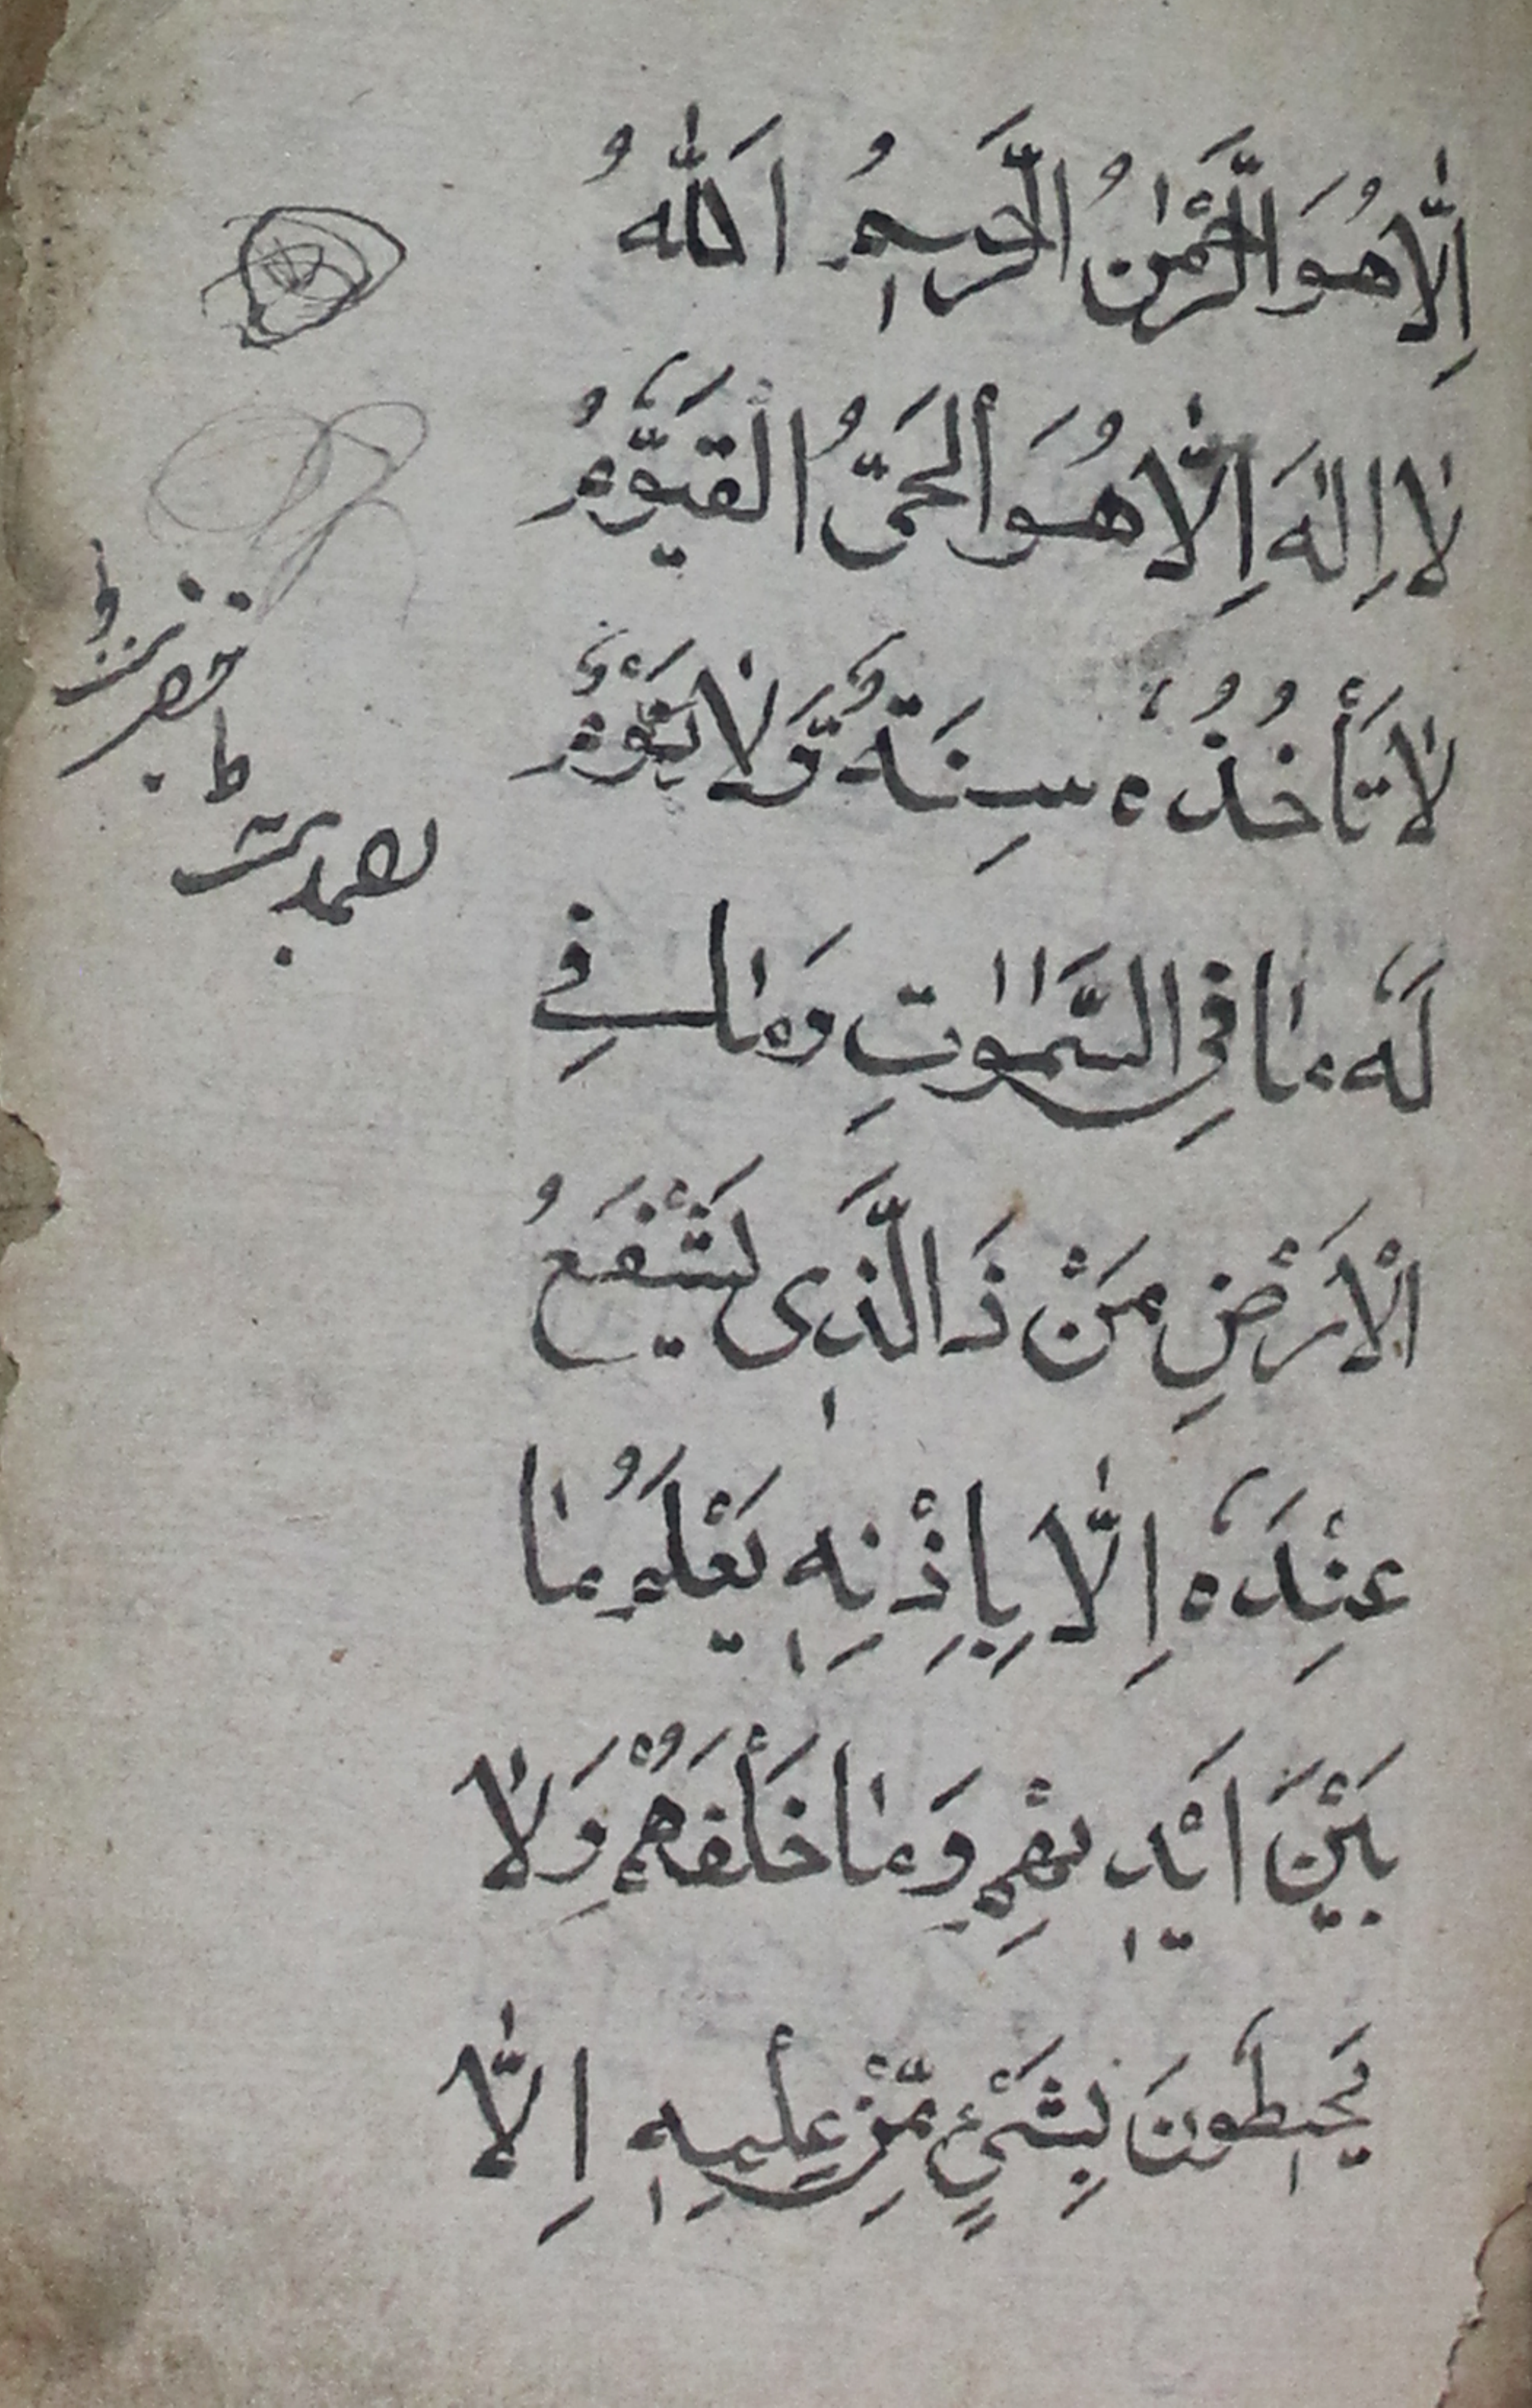 اِلَّا هُوَ الرَّحْمٰنُ الرَّحٖيمُ اَللّٰهُ
لٰا اِلٰهَ اِلَّا هُوَ اَلْحَىُّ الْقَيُّومُ
لٰا تَأْخُذُهُ سِنَةٌ وَّلٰا نَوْمٌ
لَهُ مٰا فِى السَّمٰوٰاتِ وَمٰا فِى
الْاَرْضِ مَنْ ذَا الَّذٖى يَشْفَعُ
عِنْدَهُ اِلَّا بِاِذْنِهٖ يَعْلَمُ مٰا
بَيْنَ اَيْدٖيهِمْ وَمٰا خَلْفَهُمْ وَلٰا
يُحٖيطُونَ بِشَىْءٍ مِّنْ عِلْمِهٖ اِلَّا